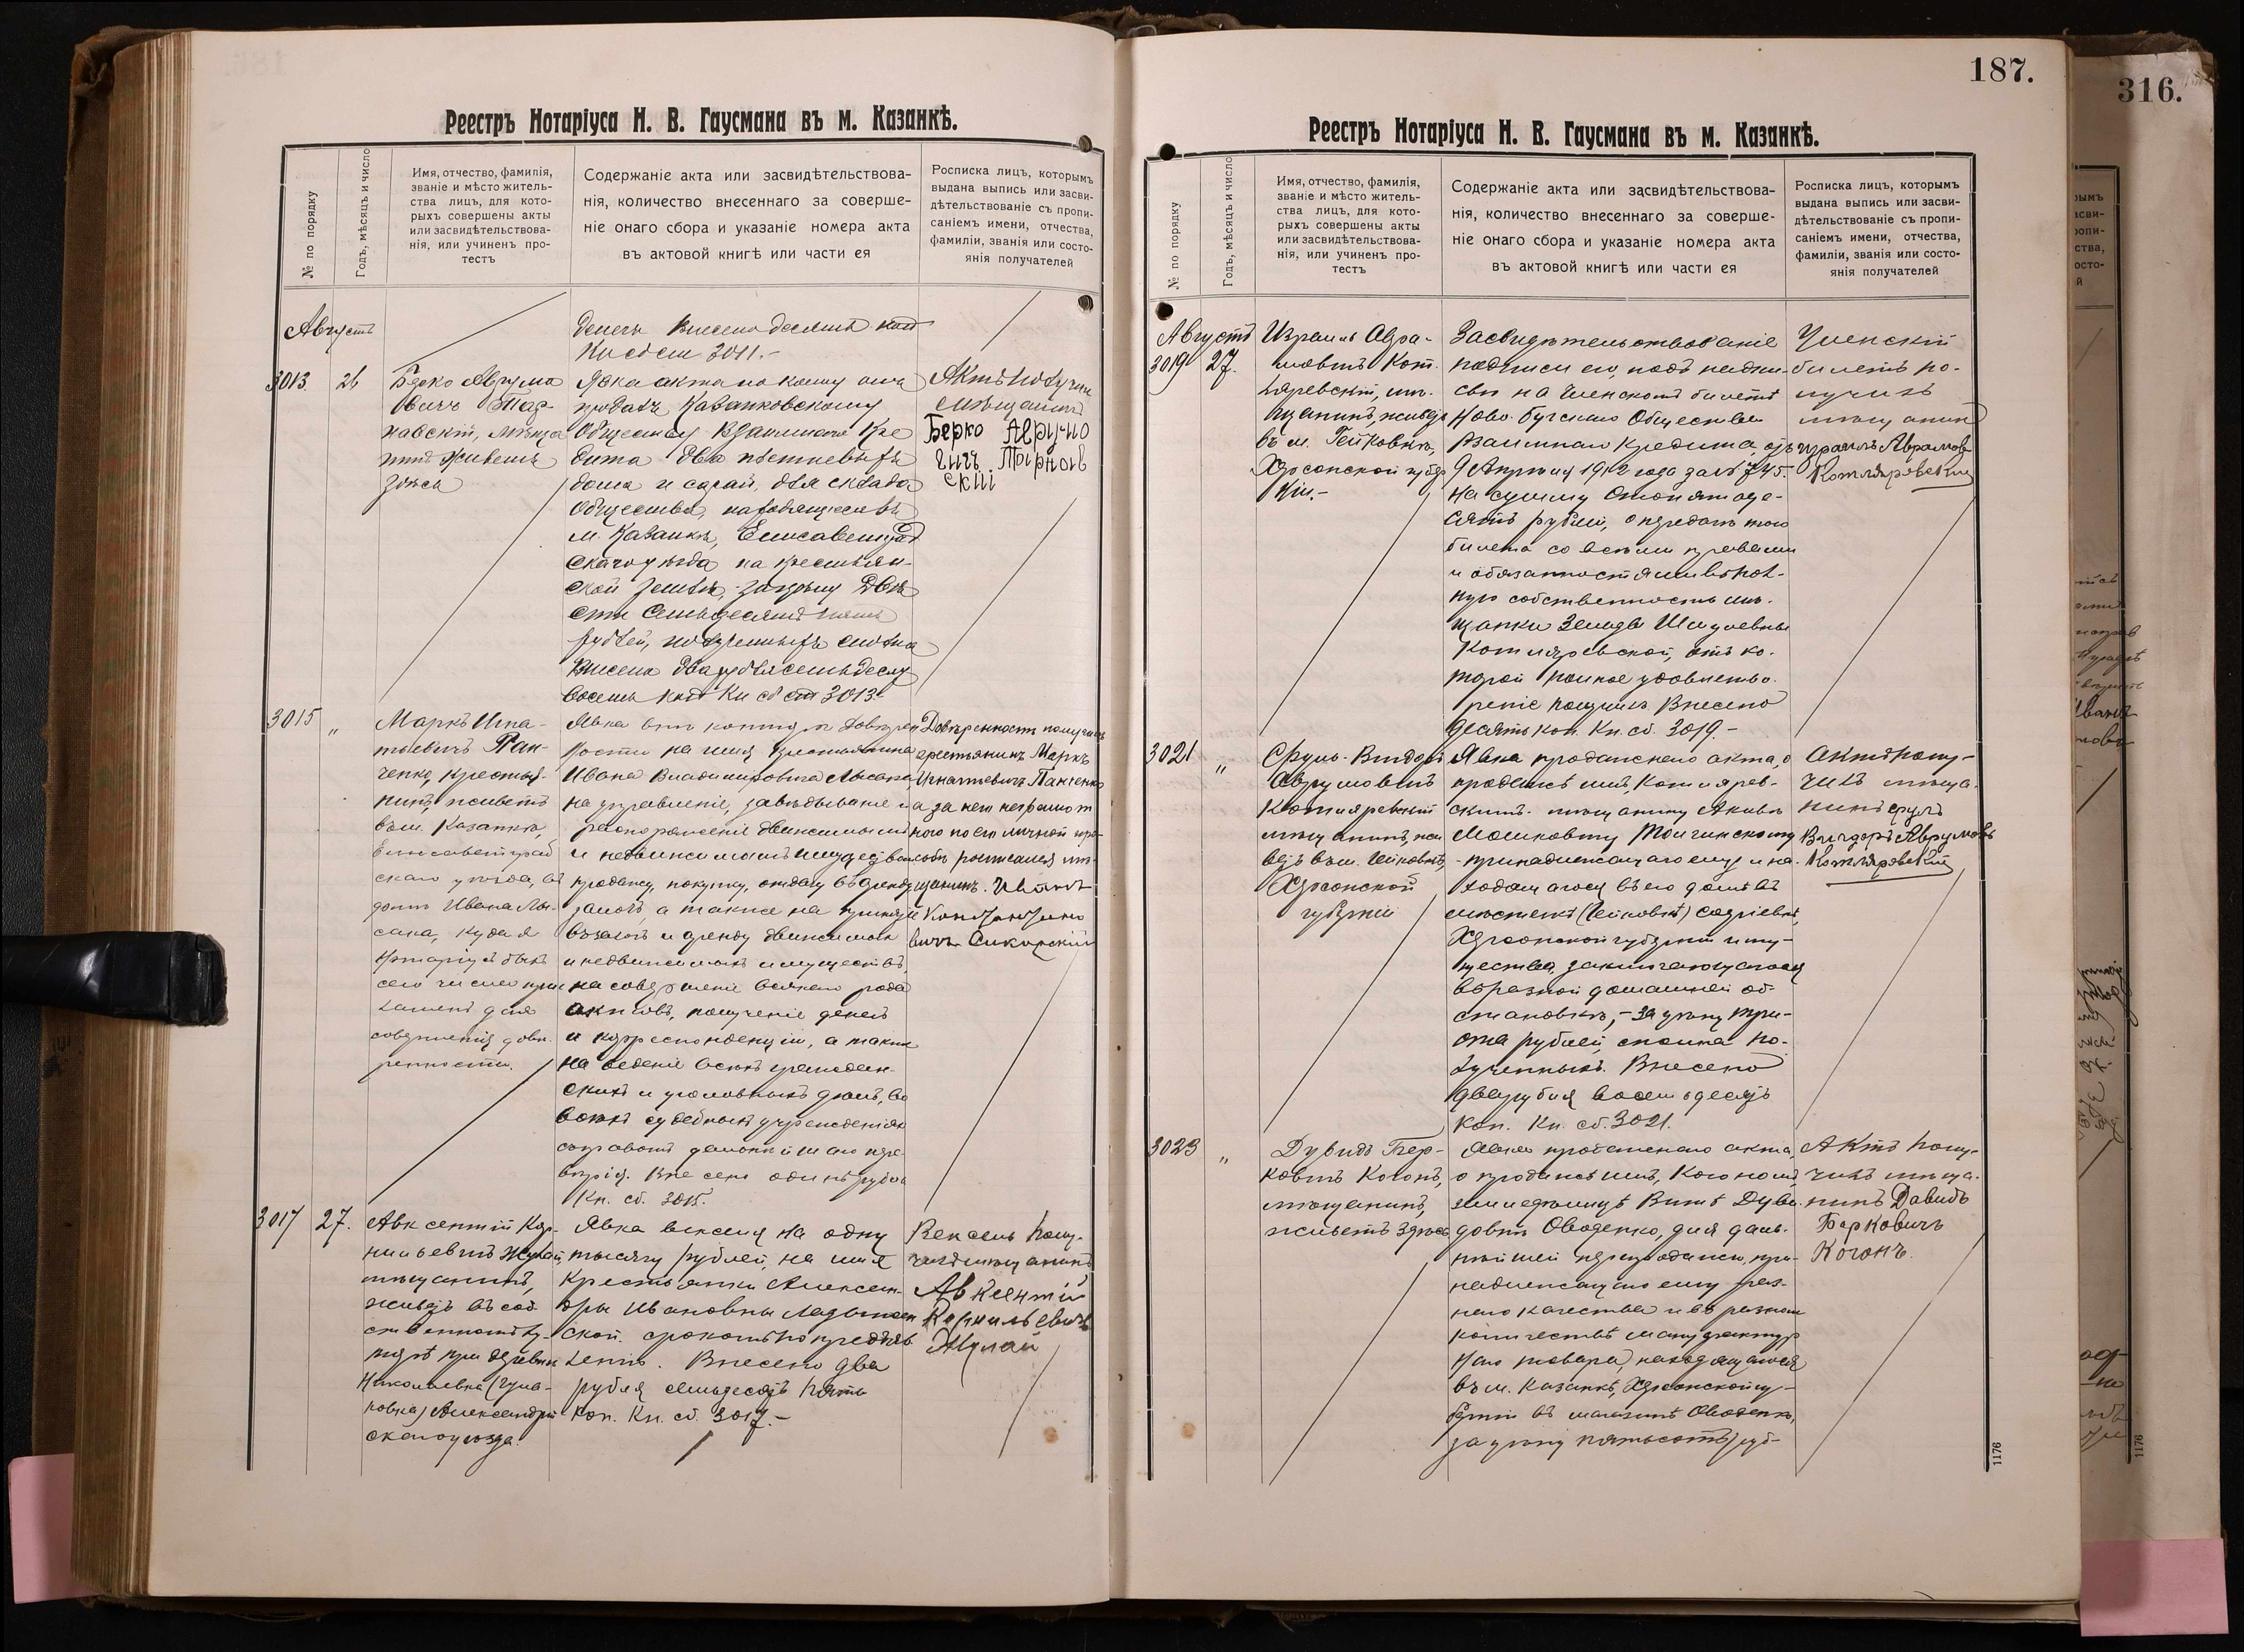 Реестръ Нотаріуса Н. В. Гаусмана въ м. Казанкѣ.
№ по порядку
Годъ, мѣсяцъ и число
Имя, отчество, фамилія,
званіе и мѣсто житель-
ства лицъ, для кото-
рыхъ совершены акты
или засвидѣтельствова-
нія, или учиненъ про-
тестъ
Содержаніе акта или засвидѣтельствова-
нія, количество внесеннаго за соверше-
ніе онаго сбора и указаніе номера акта
въ актовой книгѣ или части ея
Росписка лицъ, которымъ
выдана выпись или засви-
дѣтельствованіе съ пропи-
саніемъ имени, отчества,
фамиліи, званія или состо-
янія получателей
Августъ
денегъ Внесено десять коп
Кн сб ст 3011.-
3013. 26
Берко Аврумо
вичъ Тар-
навскій, мѣща
нинъ живетъ
здѣсь
Явка акта по коему она
продатъ Казанковскому
Обществу Взаимнаго Кре
дита два
дома и сарай, для склада
Общества, находящіеся въ
м. Казанкѣ, Елисаветград
скаго уѣзда на крестьян-
ской землѣ, за цѣну Двѣ
сти Семьдесятъ пять
рублей, полученныхъ сполна
Внесено два рубля семьдесят
восемь коп Кн сб ст 3013.
Актъ получил
мѣщанинъ
Берко Аврумо
вичъ Тарнов
скій
3015 "
Маркъ Игна-
тьевичъ Пан-
ченко, крестья-
нинъ, живетъ
въ м. Казанкѣ,
Елисаветград
скаго уѣзда, въ
домѣ Ивана Лы-
сака, куда я
Нотаріусъ былъ
сего числа при
глашенъ для
совершенія довѣ-
ренности.
Явка въ копіи довѣрен
ности на имя крестьянина
Ивана Владимировича Лысака,
на управленіе, завѣдываніе и
распоряженіе движимымъ
и недвижимымъ имуществом
продажу, покупку, отдачу въ аренду
залогъ, а также на принятіе
въ залогъ и аренду движимыхъ
и недвижимыхъ имуществъ,
на совершеніе всякаго рода
актовъ, полученіе денегъ
и корреспонденціи, а также
на веденіе всѣхъ граждан-
скихъ и уголовныхъ дѣлъ, во
всѣхъ судебныхъ учрежденіях
съ правомъ дальнѣйшаго пере
вѣрія. Внесено одинъ рубль
Кн. сб. 3015.
Довѣренность получилъ
крестьянинъ Маркъ
Игнатьевичъ Панченко
а за него неграмот
наго по его личной прось-
бѣ росписался мѣ-
щанинъ
Константино
вичъ Сикорскій
3017 27.
Авксентій Кор-
нильевичъ Жулай,
мѣщанинъ,
живетъ въ соб
ственномъ ху-
торѣ при деревнѣ
Николаевка
Александрій
скаго уѣзда.
Явка векселя на одну
тысячу рублей, на имя
крестьянки Алексан-
дры Ивановны
ской срокомъ по предъяв
ленію. Внесено два
рубля семьдесятъ пять
коп. Кн. сб. 3017.-
Вексель полу-
чилъ мѣщанинъ
Авксентій
Корнильевичъ
Жулай
187.
Реестръ Нотаріуса Н. В. Гаусмана въ м. Казанкѣ.
№ по порядку
Годъ, мѣсяцъ и число
Имя, отчество, фамилія,
званіе и мѣсто житель-
ства лицъ, для кото-
рыхъ совершены акты
или засвидѣтельствова-
нія, или учиненъ про-
тестъ
Содержаніе акта или засвидѣтельствова-
нія, количество внесеннаго за соверше-
ніе онаго сбора и указаніе номера акта
въ актовой книгѣ или части ея
Росписка лицъ, которымъ
выдана выпись или засви-
дѣтельствованіе съ пропи-
саніемъ имени, отчества,
фамиліи, званія или состо-
янія получателей
Августъ
3019 27.
Израиль Авра-
мовичъ Кот-
ляревскій, мѣ-
щанинъ, живетъ
въ м. Гейковкѣ,
Херсонской губер
ніи.-
Засвидѣтельствованіе
подписи его, подъ надпи-
сью на Членскомъ билетѣ
Ново-Бугскаго Общества
Взаимнаго Кредита, отъ
9 Апрѣля 1912 года за № 745.
на сумму Стопятьде-
сятъ рублей, о передачѣ того
билета со всѣми правами
и обязанностями въ пол-
ную собственность мѣ-
щанки Зельды Шмулевны
Котляревской, отъ ко-
торой полное удовлетво-
реніе получилъ. Внесено
десять коп. Кн. сб. 3019.-
Членскій
билетъ по-
лучилъ
мѣщанинъ
Израиль Аврамов
Котляревскій
3021 "
Сруль-Вигдоръ
Аврумовичъ
Котляревскій
мѣщанинъ, жи
ветъ въ м. Гейковкѣ,
Херсонской
губерніи
Явка продажнаго акта, о
продажѣ имъ, Котлярев-
скимъ мѣщанину Якову
Мошковичу
принадлежащаго ему и на-
ходящагося въ его домѣ въ
мѣстечкѣ (Гейковкѣ) Софіевкѣ,
Херсонской губерніи иму-
щества, заключающагося
въ разной домашней об-
становкѣ, - за цѣну три-
ста рублей, сполна по-
лученныхъ. Внесено
два рубля восемьдесятъ
коп. Кн. сб. 3021.
Актъ полу-
чилъ мѣща-
нинъ Сруль
Вигдоръ Аврумовъ
Котляревскій
3023 "
Дувидъ Бер-
ковичъ Когонъ,
мѣщанинъ,
живетъ здѣсь
Явка продажнаго акта,
о продажѣ имъ, Когономъ,
Дуви-
довнѣ Оводенко, для даль-
нѣйшей перепродажи, при-
надлежащаго ему раз-
наго качества и въ разномъ
количествѣ мануфактур
наго товара, находящагося
въ м. Казанкѣ, Херсонской гу-
берніи въ магазинѣ Оводенко,
за цѣну пятьсотъ руб-
Актъ полу-
чилъ мѣща-
нинъ Давидъ
Берковичъ
Когонъ.
1176
316.
1176